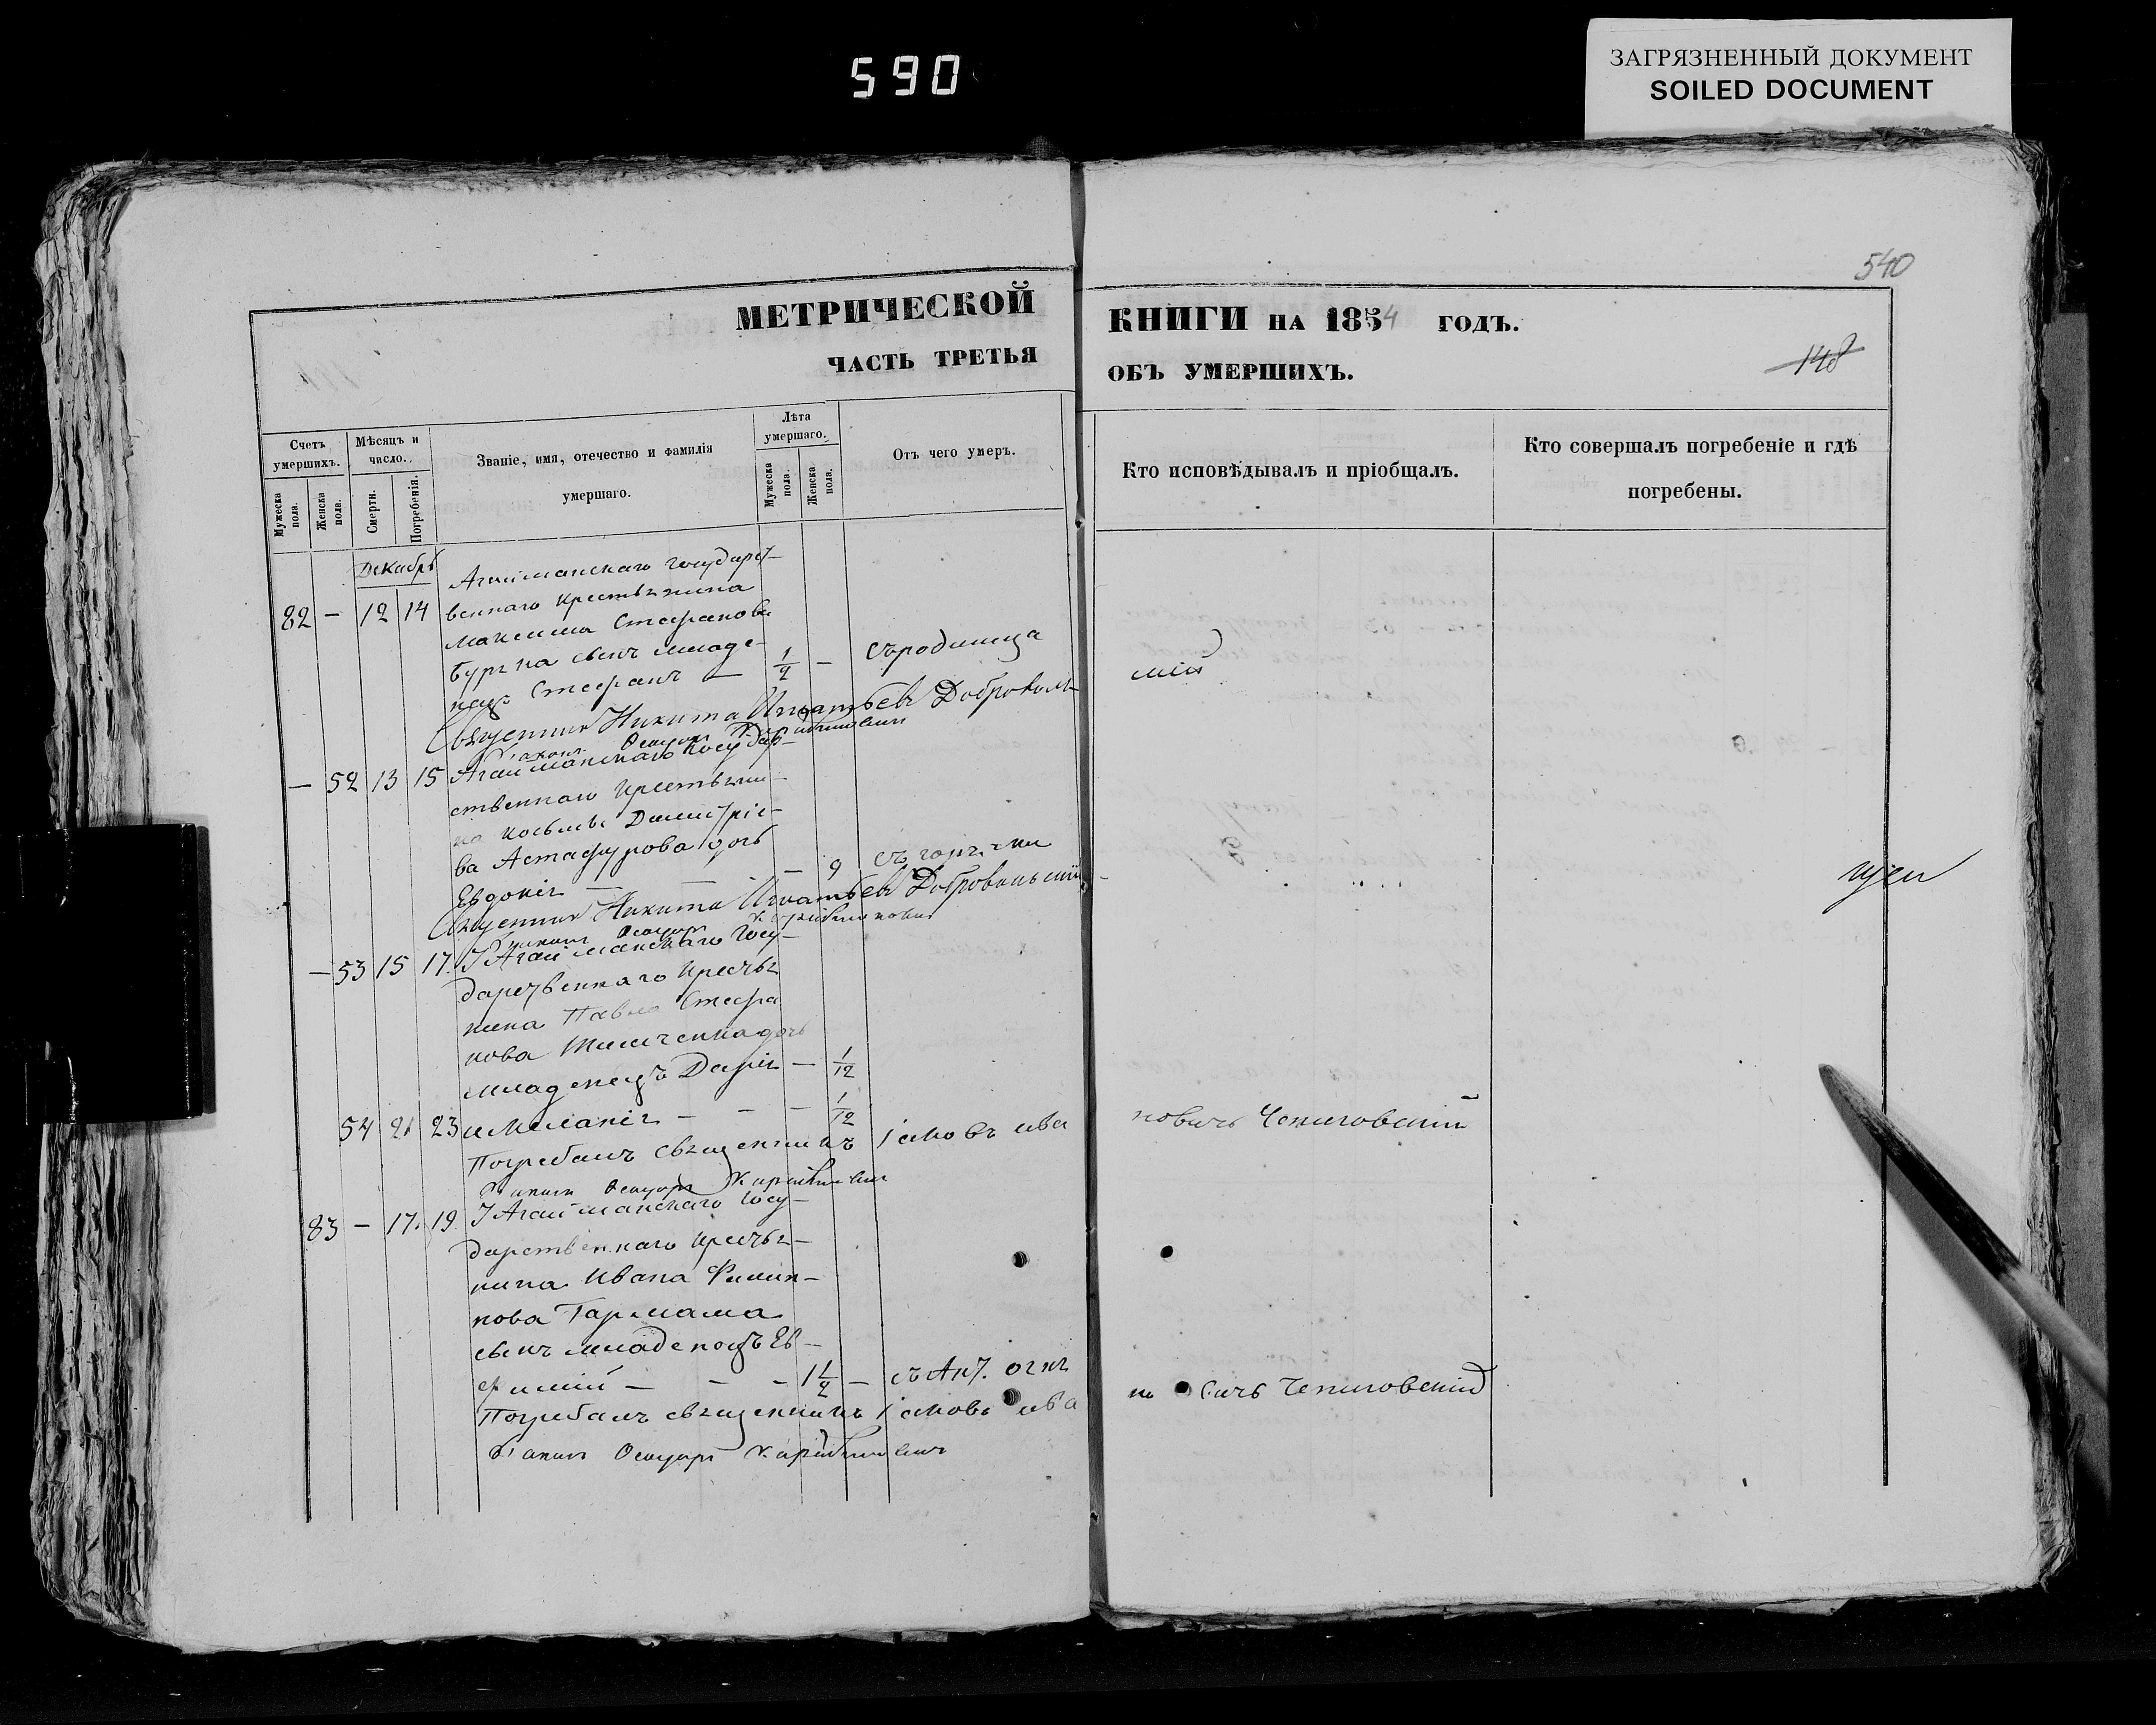 590
ЗАГРЯЗНЕННЫЙ ДОКУМЕНТ
SOILED DOCUMENT
540
МЕТРИЧЕСКОЙ КНИГИ НА 1854 ГОДЪ.
ЧАСТЬ ТРЕТЬЯ ОБЪ УМЕРШИХЪ.
148
Счетъ умершихъ.
Мужеска пола.
Женска пола.
Мѣсяцъ и число.
Смерти.
Погребенія.
Званіе, имя, отечество и фамилія умершаго.
Лѣта умершаго.
Мужеска пола.
Женска пола.
Отъ чего умеръ.
Кто исповѣдывалъ и пріобщалъ.
Кто совершалъ погребеніе и гдѣ погребены.
Декабрь
Агайманскаго государст-
82 - 12 14 веннаго крестьянина
Максима Стефанова
сынъ младе-
нецъ Стефанъ — 1/2 - съродимца
Священник Никита Игнатьевъ Доброволь-
скій
- 52 13 15 Агайманскаго Государ-
ственнаго крестьяни-
на Косьмы Димитріе-
ва Астафурова дочь
Евдокія — — - 9 съ горячки
Священник Никита Игнатьевъ Добровольскій
- 53 15 17. Агайманскаго Госу-
дарственнаго крестья
нина Павла Стефа
нова дочь
младенецъ Дарія - 1/12
54 21 23 и Меланія - - - 1/12
Погребалъ священникъ Іаковъ Ива
новичъ Чепиговскій
83 - 17. 19 Агайманскаго Госу-
дарственнаго крестья-
нина Ивана Филип-
нова Гармаша
сынъ младенецъ Ев-
фимій - - - 1 1/2 - съ Ант. огня
Погребалъ священникъ Іаковъ Ива
но вичъ Чепиговскій